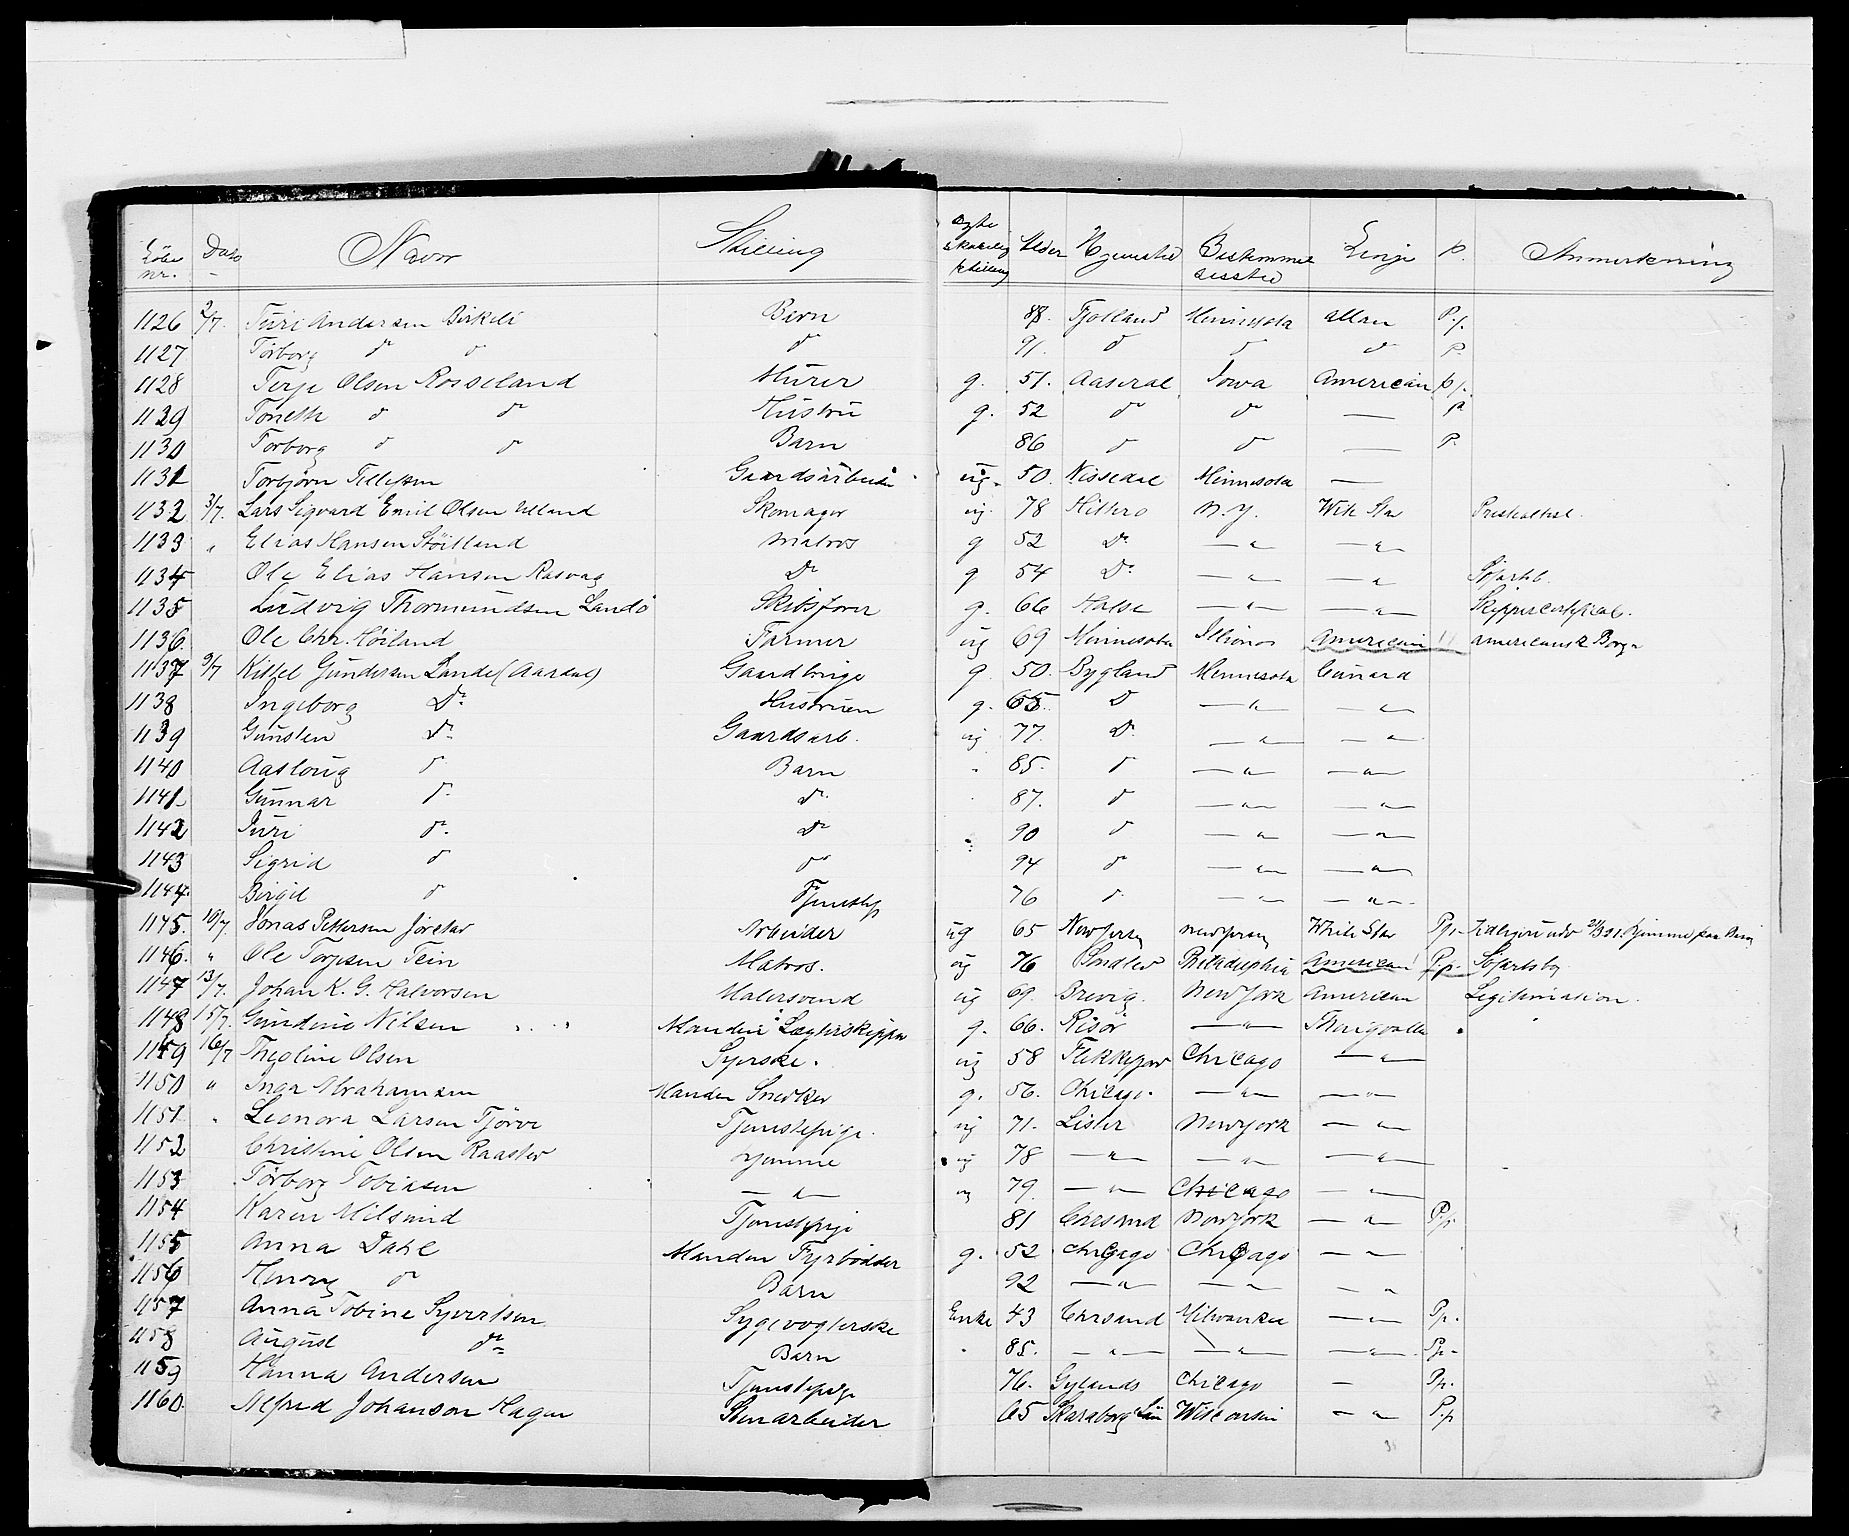 Løbe nr. Dato Navn Stilling Ægteskabelig stilling Alder Hjemsted Bestemmelsessted Linje P. Anmerkning
1126 2/7. Turi Andersen Birkeli Barn 88. Fjotland Minnesota allan P./.
1127 Torborg do do do 91. do do do P.
1128 Terje Olsen Rosseland Murer g. 51. Aaseral Iowa American p/.
1129 Toneth do do Hustru g. 52 do do — P
1130 Torborg do do Barn 86 do do — P.
1131 Torbjørn Tellefsen Gaardsarbeide ug. 50. Nissedal Minnesota —
1132 3/7. Lars Sigvard Emil Olsen Ulland Skomager ug. 78 Hittero N.Y. Wite Star
1133 " Elias Hansen Stöitland Matros g 52 Do — " — — " —
1134 Ole Elias Hansen Rasvag Do g 54 Do — " — — " Sjøfartsb.
1135 Ludvig Thormundsen Landö Skibsfører g. 66 Halse — " — — " — Skippercertificat.
1136. Ole Chr. Höiland Farmer ug 69 Minnesota Illionos American americansk Borger
1137 9/7 Kittel Gundersen Lande (Aardal) Gaardbruge g. 50. Bygland Minnesota Cunard
1138 Ingeborg Do Hustruen g. 65. D — " — — " —
1139 Gunsten Do Gaardsarb. ug 77. Do — " — — " —
1140 Aasloug do Barn " 85. do — " — — " —
1141 Gunnar do. do. 87. do — " — — " —
1142 Juri do. do 90 do — " — — " —
1143 Sigrid do do 94 do — " — — " —
1144. Birgit do Tjenestep 76 do. — " — — " —
1145. 10/7. Jonas Pettersen Jörstad Arbeider ug 65 New Jersey new jersey White Star Pp.
1146. " Ole Torjesen Tein Matros. ug 76 Philadelphia American Pp. Sjøfartsb.
1147 13/7. Johan K. G. Halvorsen Malersvend ug 69. Brevig. New York American Legitimation.
1148 15/7. Gundine Nilsen Manden Lægterskipper g. 66. Risör — " — Thingvalla
1149 16/7 Thegline Olsen Syerske. ug 58 Flekkefjord Chicago — " —
1150 " Inga Abrahamsen Manden Snedker g. 56. Chicago. — " — — " —
1151. " Leonora Larsen Tjörve Tjenestepige. ug 71. Lister Newyork — " —
1152 Christine Olsen Raastad Hjemme ug 78 — " — — " — — " —
1153 Torborg Tobiasen — " — ug 79. — " — Chicago — " —
1154 Karen Milsund Tjenestepige 81 Chrsand Newyork — " — Pp.
1155 Anna Dahl Manden Fyrbödder g. 52 Chicago Chicago — " —
1156 Henry do Barn 92 — " — — " — — "
1157 Anna Tobine Syvertsen Sygevogterske Enke 43 Chrsand Milwaukee — " — Pp.
1158 August do Barn " 85. — " — — " — — " — Pp.
1159 Hanna Andersen Tjenestepige 76. Gylands Chicago — Pp.
1160. Alfred Johanson Hagen Stenarbeider 65 Skaraborgs Län Wisconsin — " — P.p